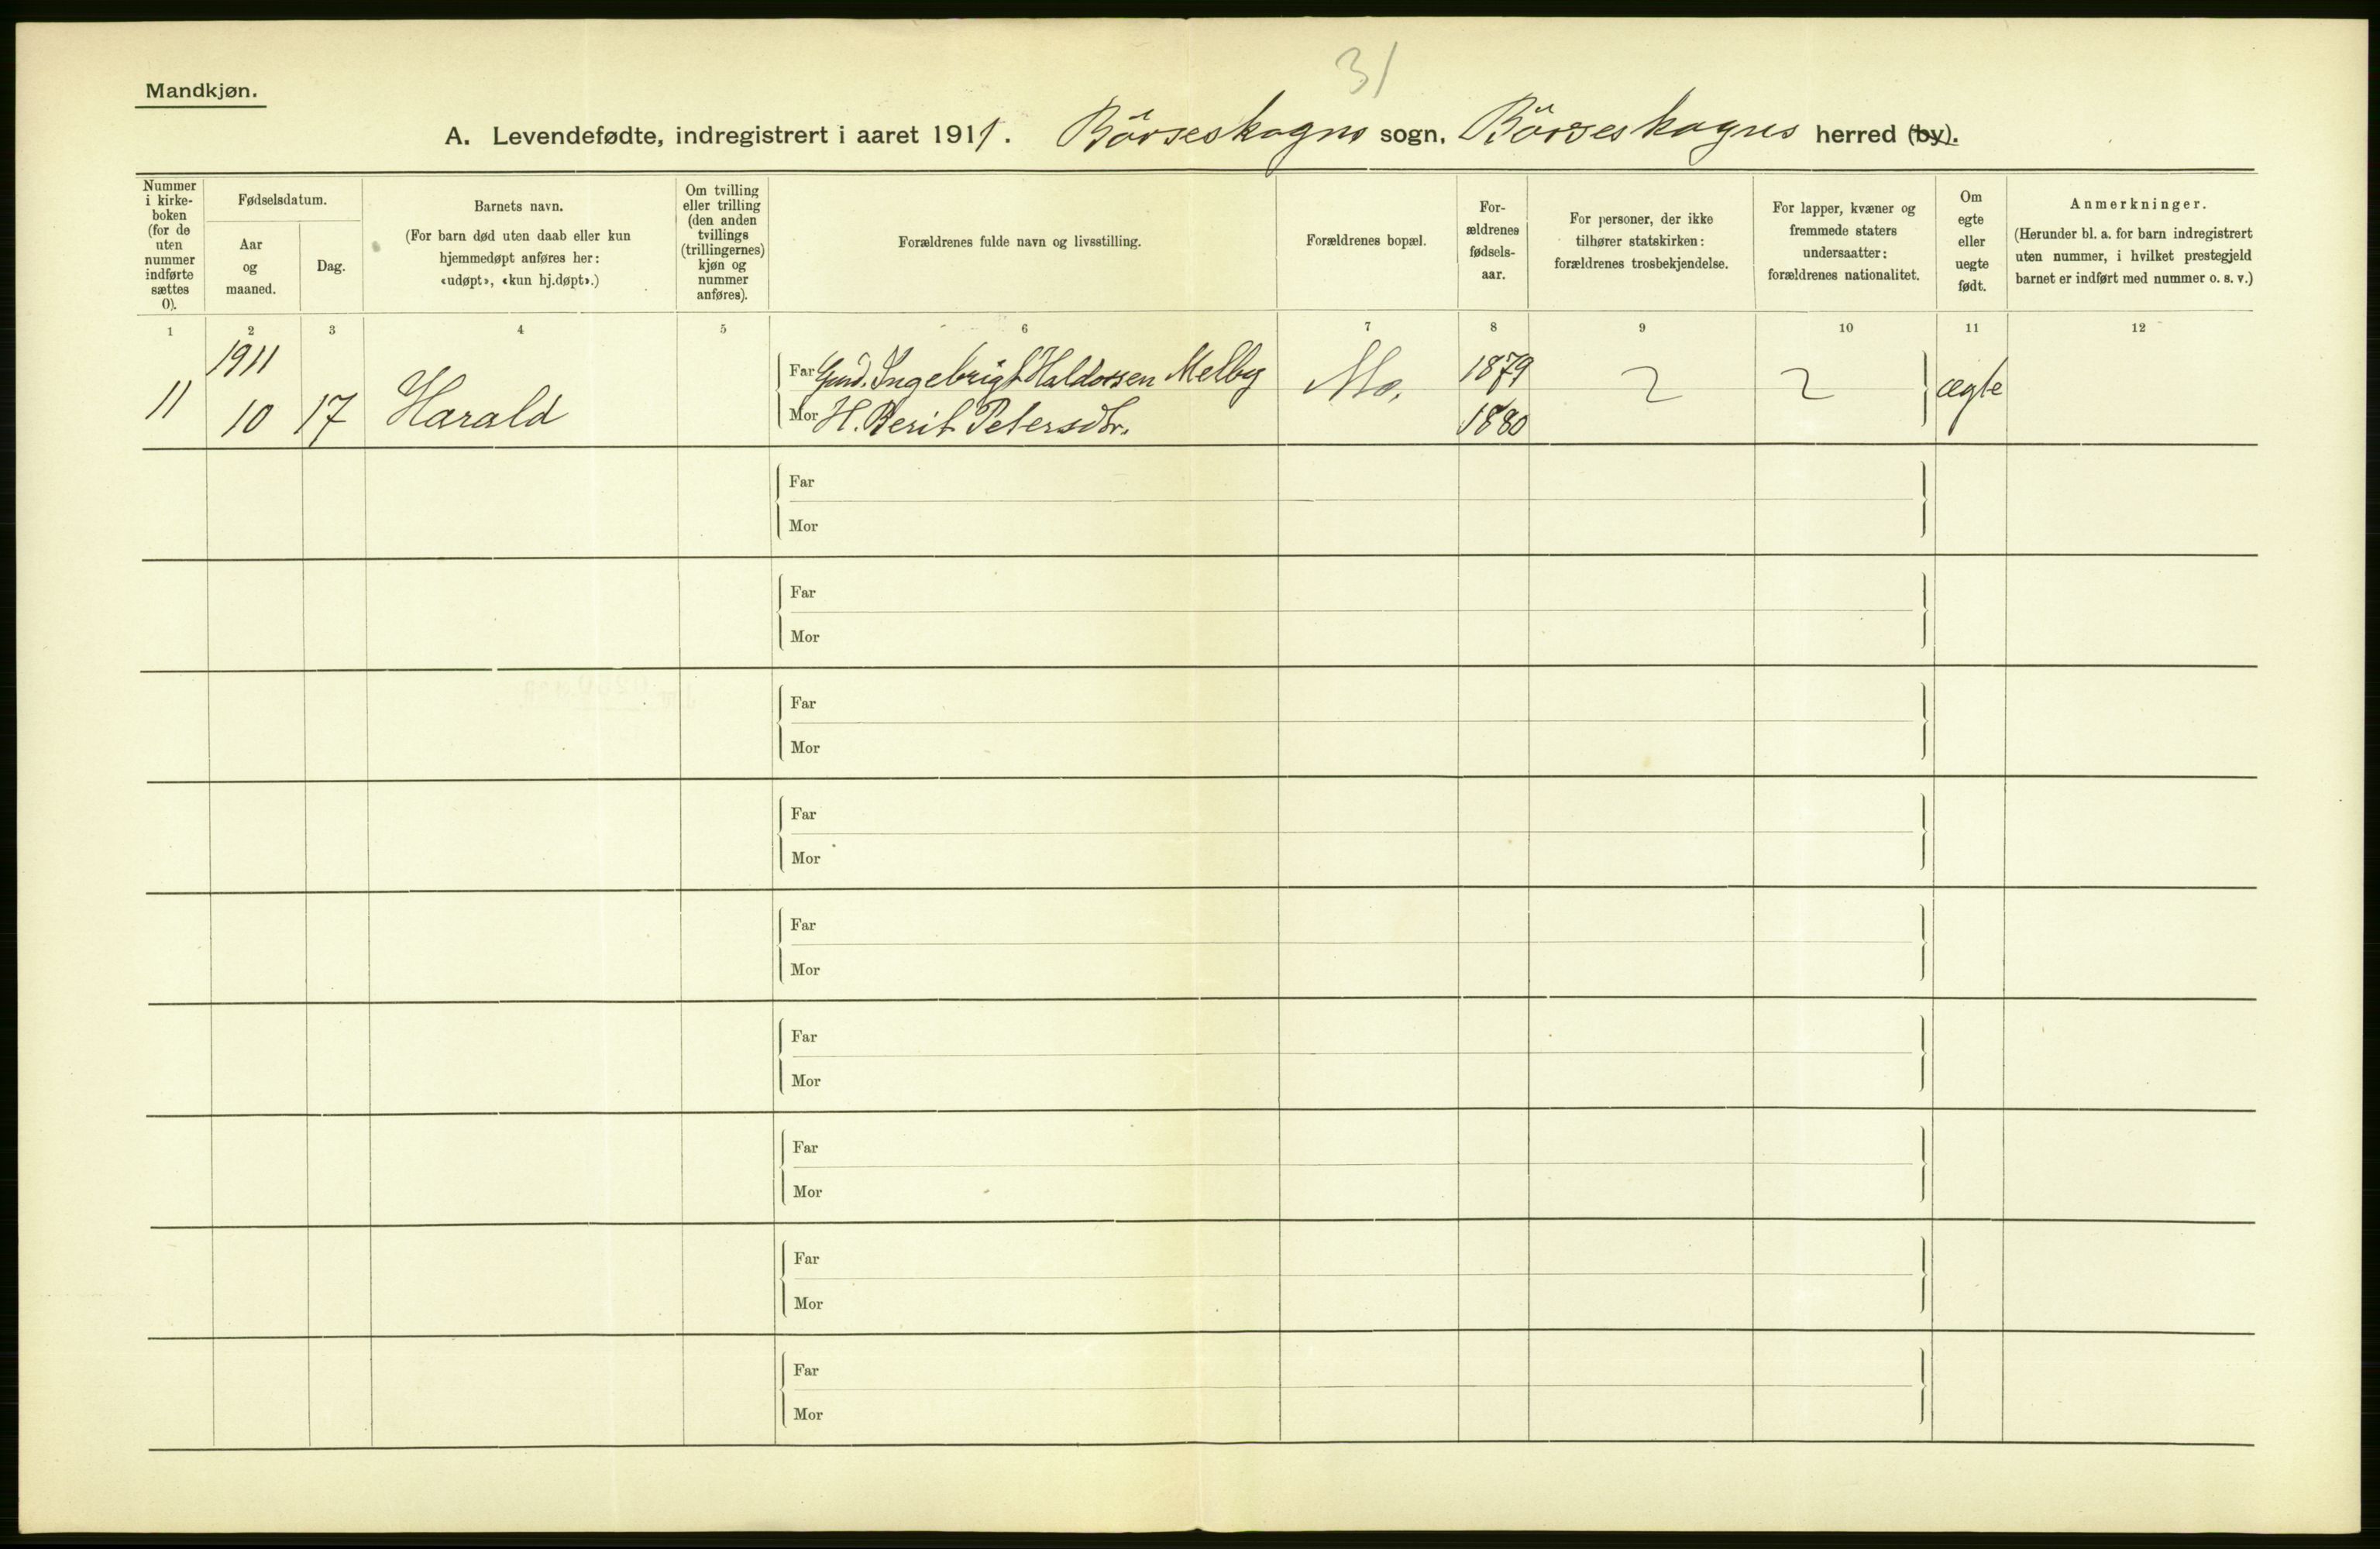 31
Mandkjøn.
A. Levendefødte, indregistrert i aaret 1911. Börseskogns sogn, Börseskogns herred (by).
Nummer i kirke-boken (for de uten nummer indførte sættes 0).
Fødselsdatum.
Aar og maaned.
Dag.
Barnets navn.
(For barn død uten daab eller kun hjemmedøpt anføres her: «udøpt», «kun hj.døpt».)
Om tvilling eller trilling (den anden tvillings (trillingernes) kjøn og nummer anføres).
Forældrenes fulde navn og livsstilling.
Forældrenes bopæl.
For-ældrenes fødsels-aar.
For personer, der ikke tilhører statskirken: forældrenes trosbekjendelse.
For lapper, kvæner og fremmede staters undersaatter: forældrenes nationalitet.
Om egte eller uegte født.
Anmerkninger.
(Herunder bl. a. for barn indregistrert uten nummer, i hvilket prestegjeld barnet er indført med nummer o. s. v.)
1 2 3 4 5 6 7 8 9 10 11 12
1911
11 10 17 Harald
Far Gmd. Ingebrigt Haldorsen Melby Mo. 1879 ægte
Mor H. Berit Petersdtr. 1880
Far
Mor
Far
Mor
Far
Mor
Far
Mor
Far
Mor
Far
Mor
Far
Mor
Far
Mor
Far
Mor